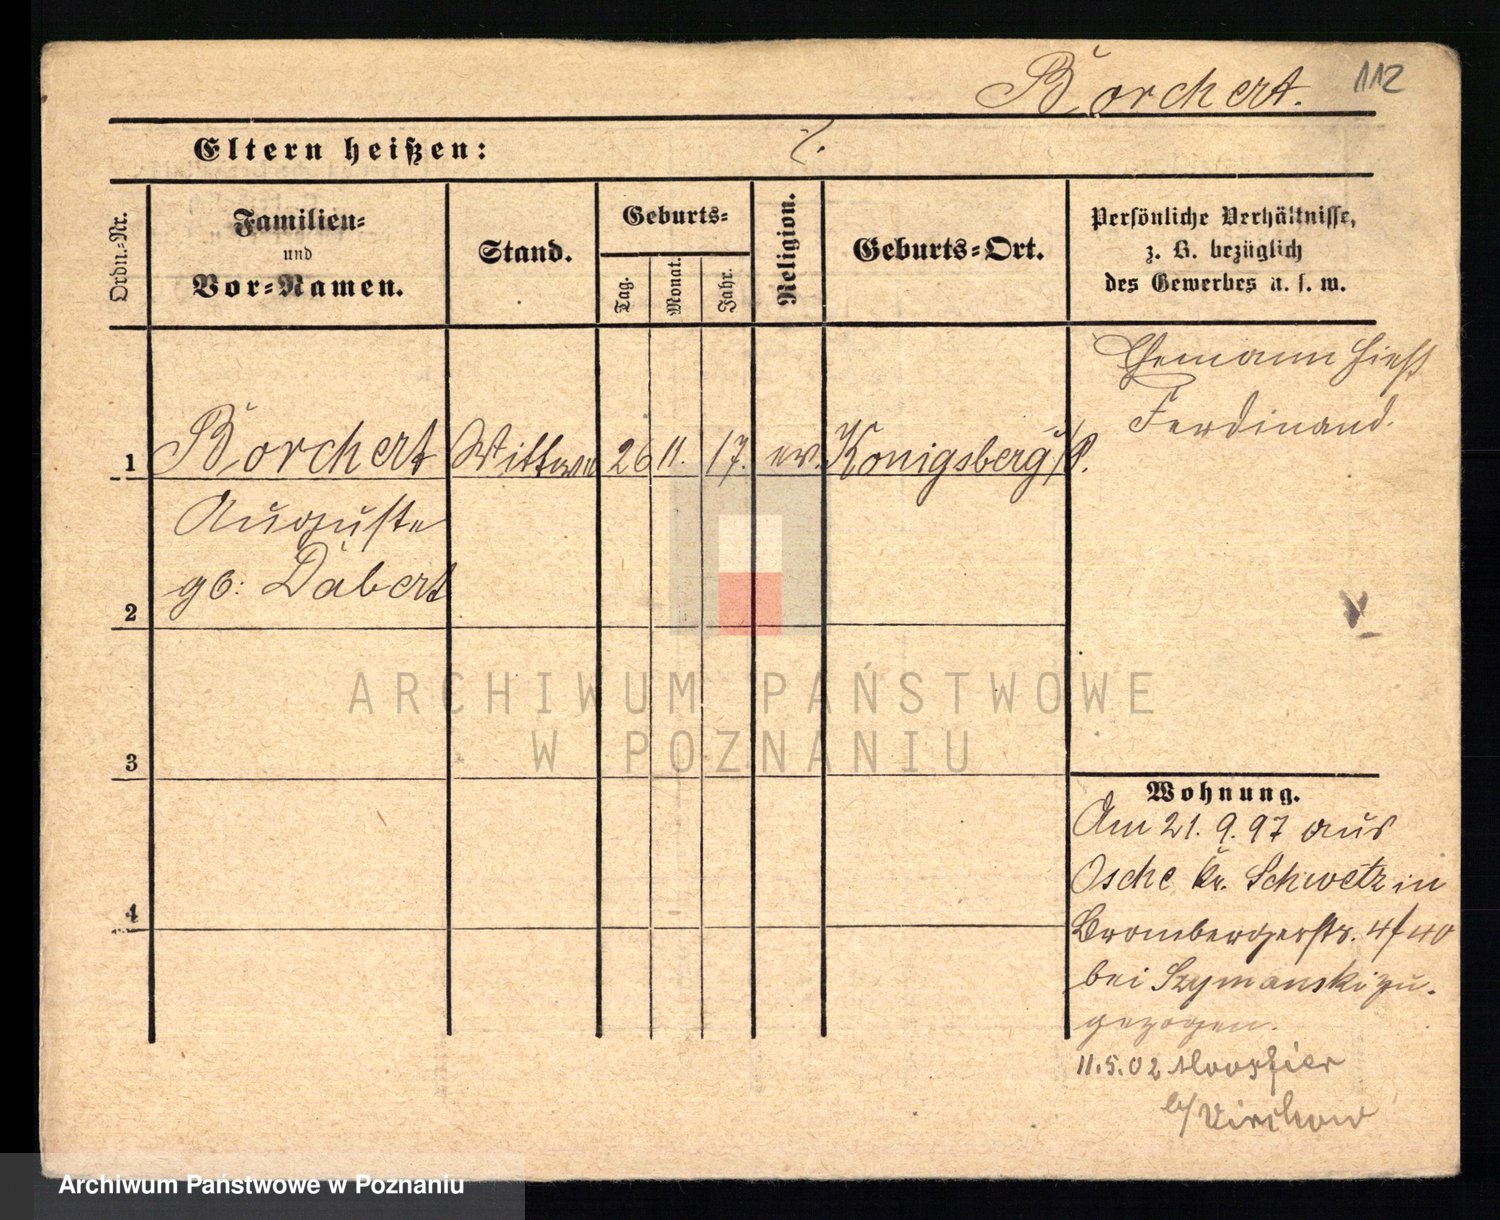 Borchert. 112
Eltern heißen: ./.
Ordn.-Nr.
Familien-
und
Vor-Namen.
Stand.
Geburts-
Tag.
Monat.
Jahr.
Religion.
Geburts-Ort.
Persönliche Verhältnisse,
z. B. bezüglich
des Gewerbes u. s. w.
Ehemann hieß
Ferdinand.
1 Borchert Wittwe 26 11. 17. ev. Königsberg i/P.
Auguste
gb: Dabert
2
3
4
Wohnung.
Am 21. 9. 97 aus
Osche Kr. Schwetz in
Brombergerstr. 4 f 40
bei Szymanski zu-
gezogen.
11.5.02
b/ Virchow
ARCHIWUM PAŃSTWOWE
W POZNANIU
Archiwum Państwowe w Poznaniu